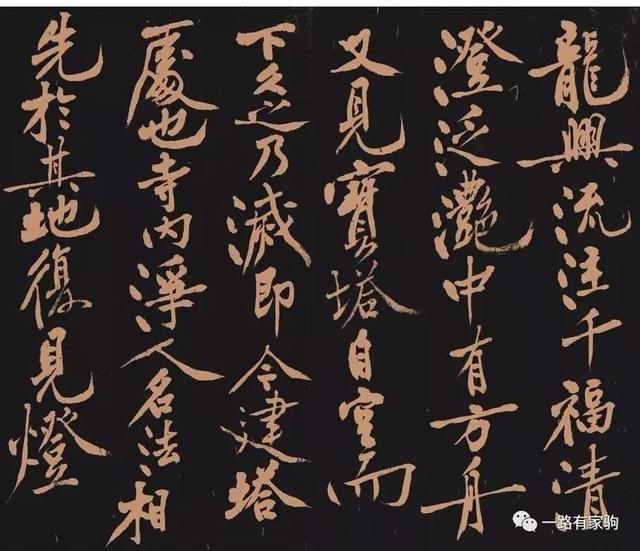 龍興流注千福清
澄泛灧中有方舟
又見寶塔自空而
下久之乃滅即今建塔
處也寺內淨人名法相
先於其地復見燈
一路有家驹